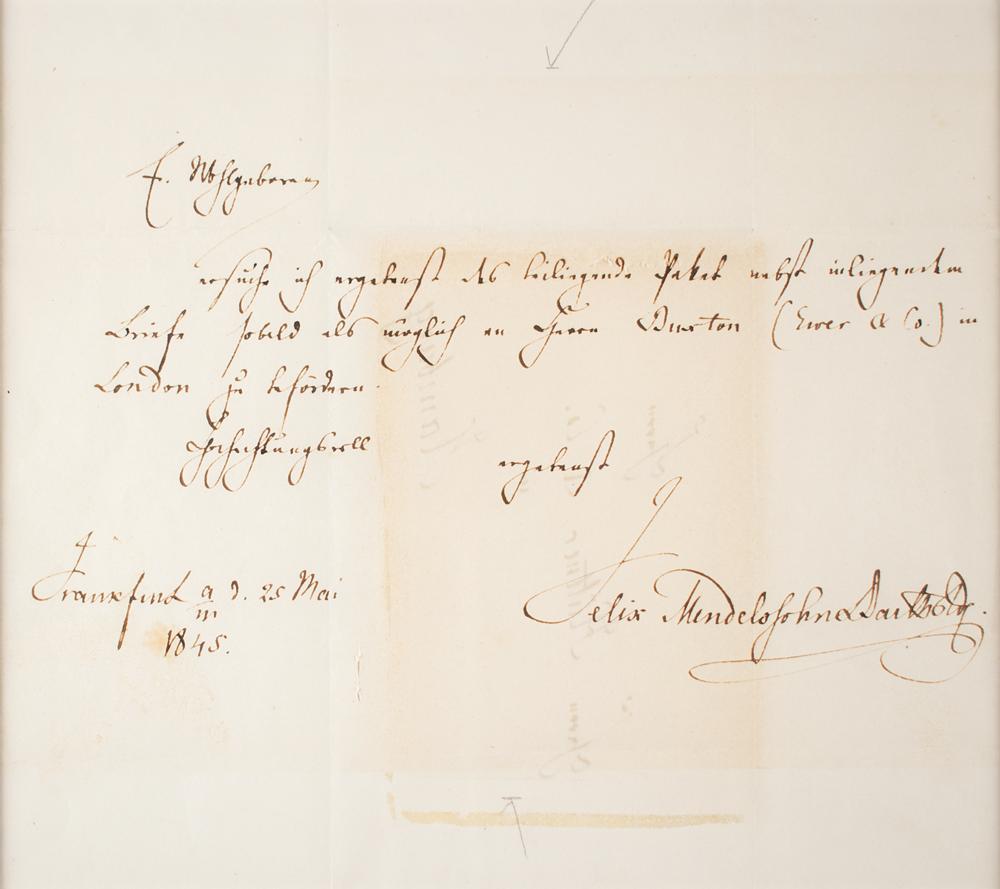 E. Wohlgeboren
ersuche ich ergebenst das beiliegende Paket nebst inliegendem
Briefe sobald als möglich an Herrn Buxton (Ewer & Co.) in
London zu befördern.
Hochachtungsvoll
ergebenst
Frankfurt a m d. 25 Mai
1845.
Felix Mendelssohn Bartholdy.